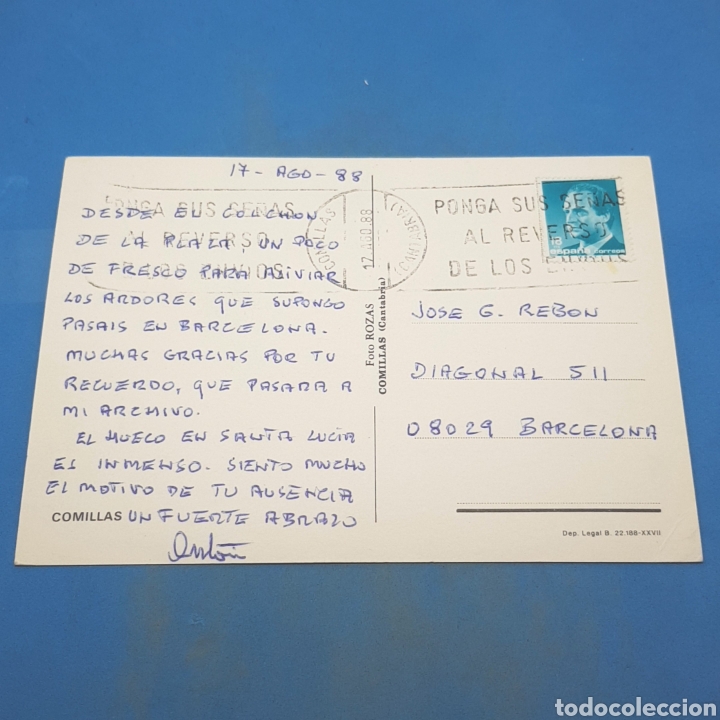 17 - AGO - 88
PONGA SUS SEÑAS
AL REVERSO
COMILLAS
17 AGO.88
(CANTABRIA)
PONGA SUS SEÑAS
AL REVERSO
DE LOS ENVIOS
18
españa correos
DESDE EL COLCHON
DE LA PLAZA, UN POCO
DE FRESCO PARA ALIVIAR
LOS ARDORES QUE SUPONGO
PASAIS EN BARCELONA.
MUCHAS GRACIAS POR TU
RECUERDO, QUE PASARA A
MI ARCHIVO.
EL HUECO EN SANTA LUCIA
ES INMENSO. SIENTO MUCHO
EL MOTIVO DE TU AUSENCIA
UN FUERTE ABRAZO
COMILLAS
Foto ROZAS
COMILLAS (Cantabria)
JOSE G. REBON
DIAGONAL 511
08029 BARCELONA
Dep. Legal B. 22.188-XXVII
todocoleccion